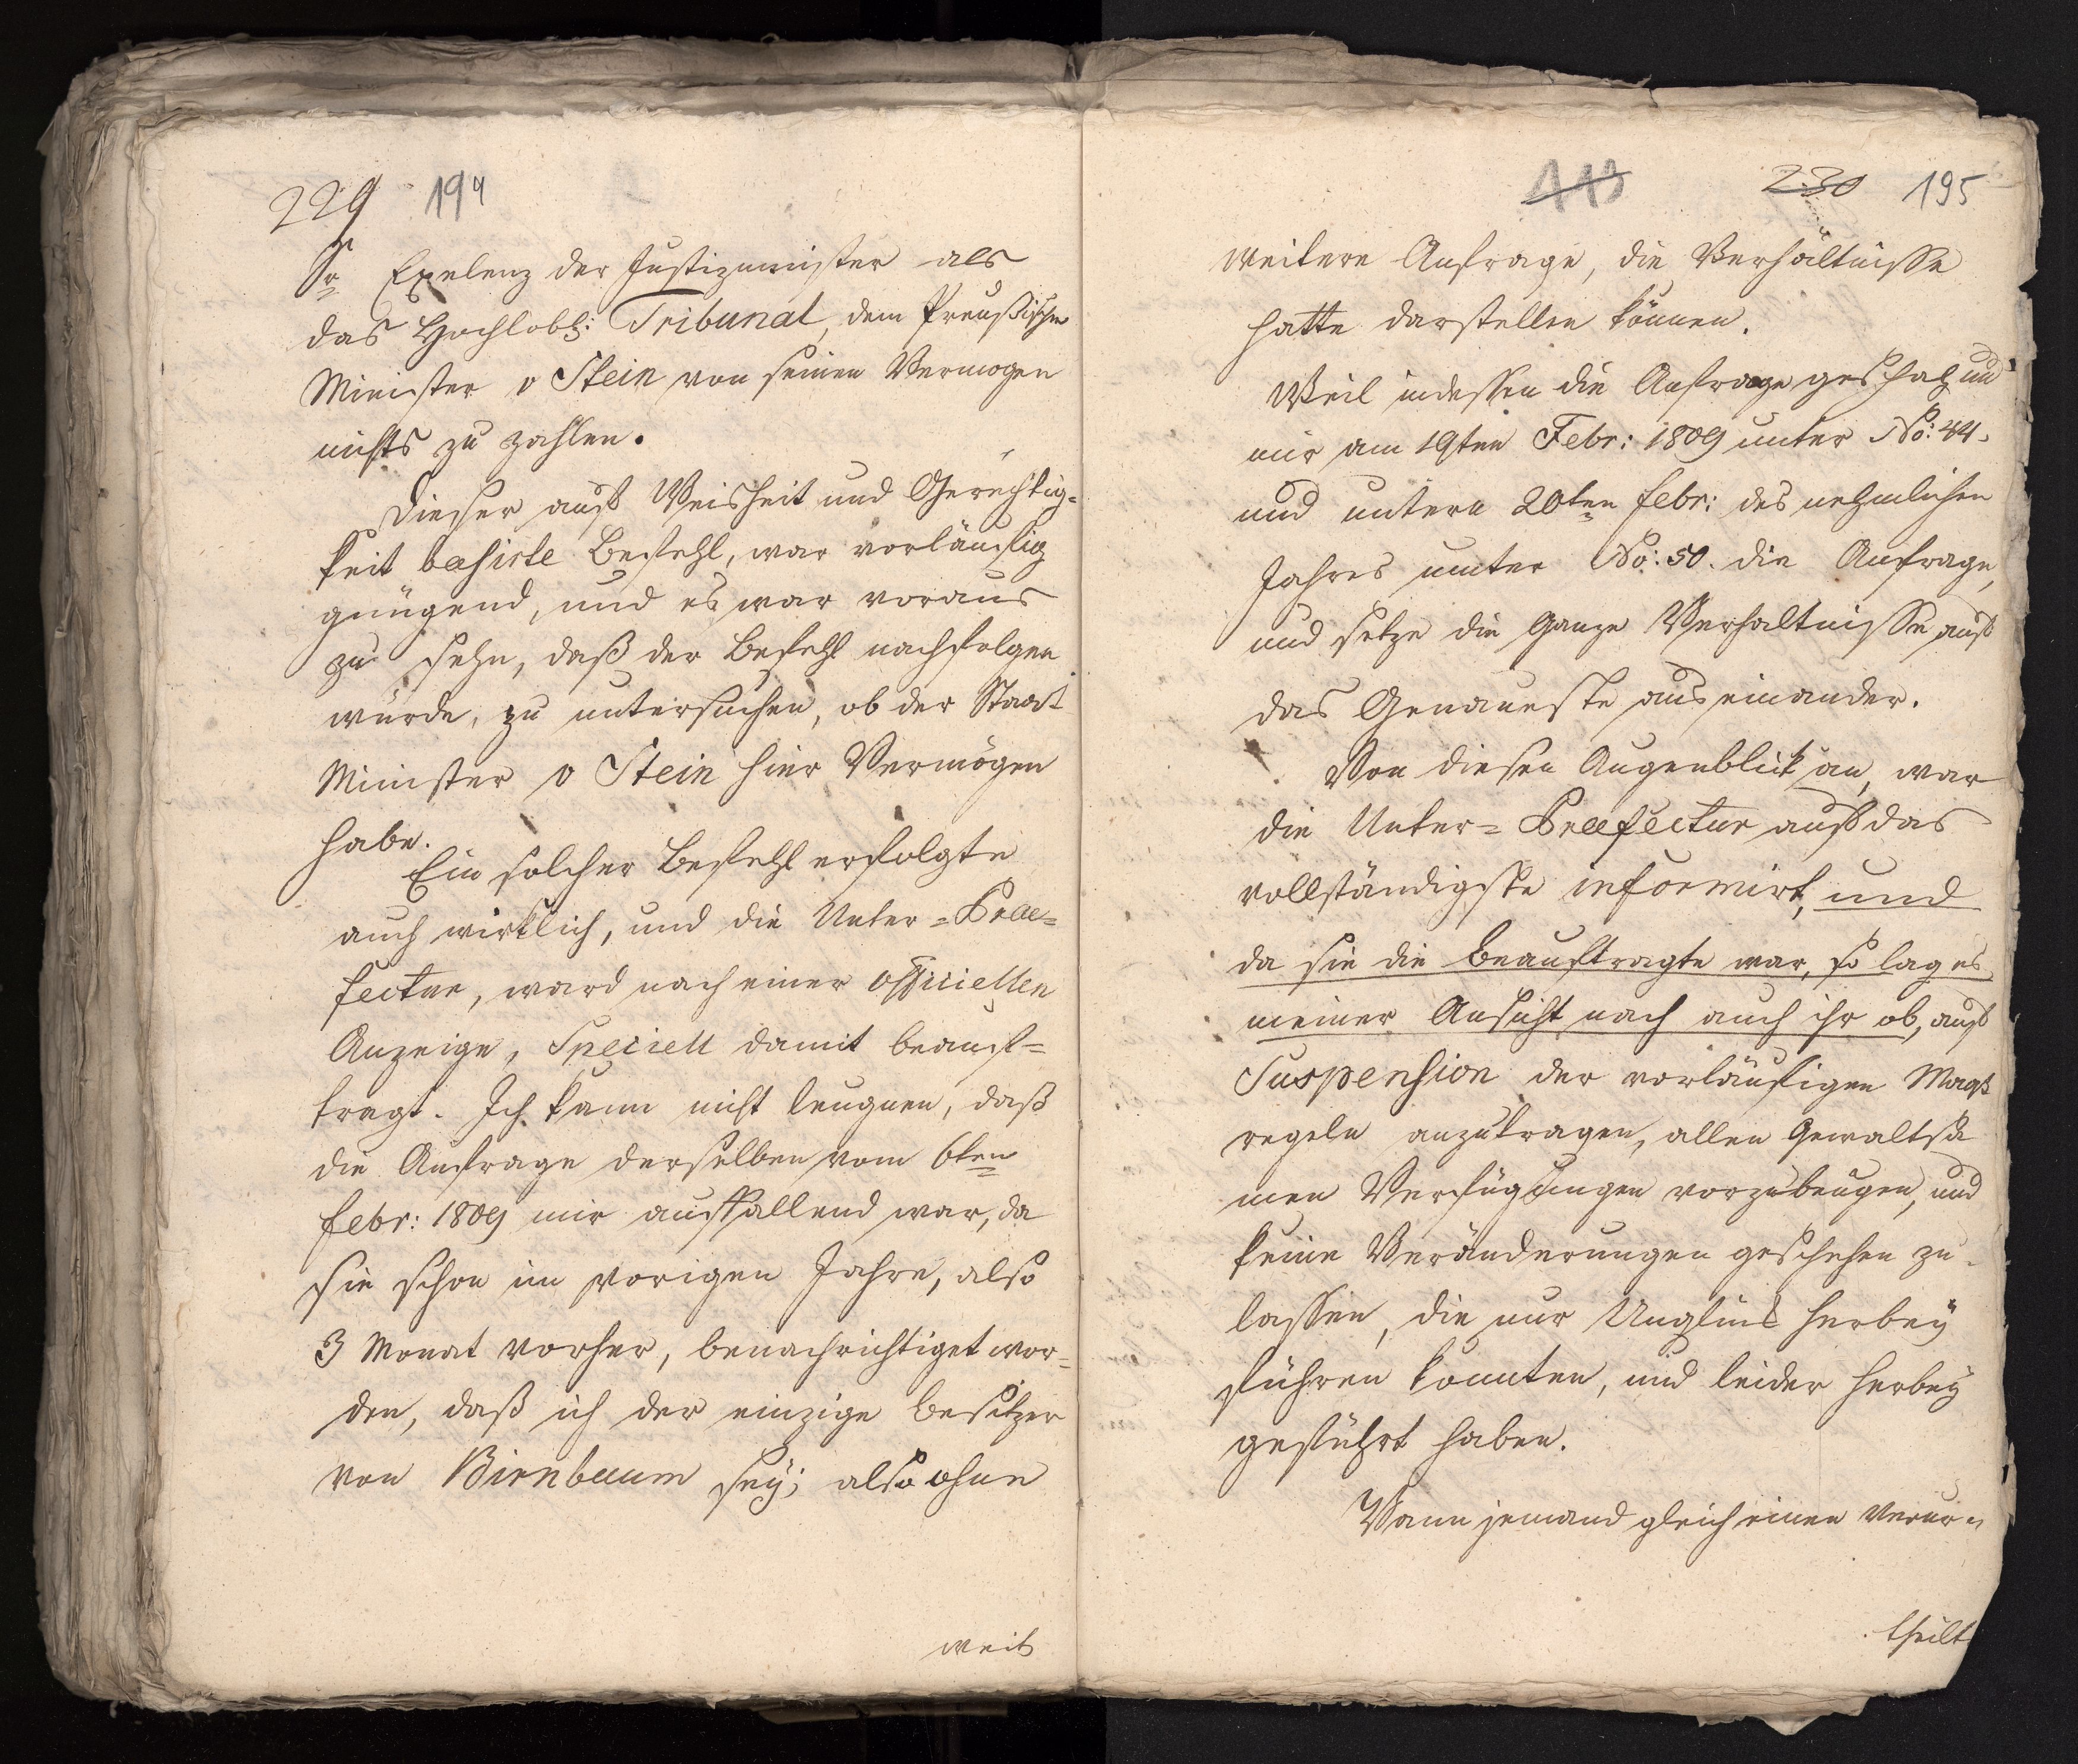 229 194
Sr. Exelenz der Justizminister als
das Hochlobl: Tribunal, dem Preußischen
Minister v Stein von seinen Vermogen
nichts zu zahlen.
Dieser auf Weisheit und Gerechtig=
keit basirte Befehl, war vorläufig
gnügend, und es war voraus
zu sehn, daß der Befehl nachfolgen
würde, zu untersuchen, ob der Staat
Minister v Stein hier Vermögen
habe.
Ein solcher Befehl erfolgte
auch wirklich, und die Unter=Prae=
fectur, ward nach einer officiellen
Anzeige, Speciell damit beauf=
tragt. Ich kann nicht leugnen, daß
die Anfrage derselben vom 6ten
Febr: 1809 mir auffallend war, da
sie schon im vorigen Jahre, also
3 Monat vorher, benachrichtiget wor=
den, daß ich der einzige Besitzer
von Birnbaum sey; also ohne
weit
113 230 195
weitere Anfrage, die Verhältnisse
hatte darstellen können.
Weil indessen die Anfrage geschah und
mir am 19ten Febr: 1809 unter No: 44.
und untern 20ten Febr: des nehmlichen
Jahres unter No: 50. die Anfrage,
und setze die Ganze Verhaltnisse auf
das Genaueste auseinander.
Von diesen Augenblick an, war
die Unter=Praefectur auf das
vollständigste informirt, und
da sie die Beauftragte war, so lag es
meiner Ansicht nach auch ihr ob, auf
Suspension der vorläufigen Maaß
regeln anzutragen, allen Gewaltsa
men Verfügungen vorzubeugen, und
keine Veränderungen geschehen zu
lassen, die nur Unglück herbey
führen konnten, und leider herbey
geführt haben.
Wann jemand gleich einen Verur=
theilt